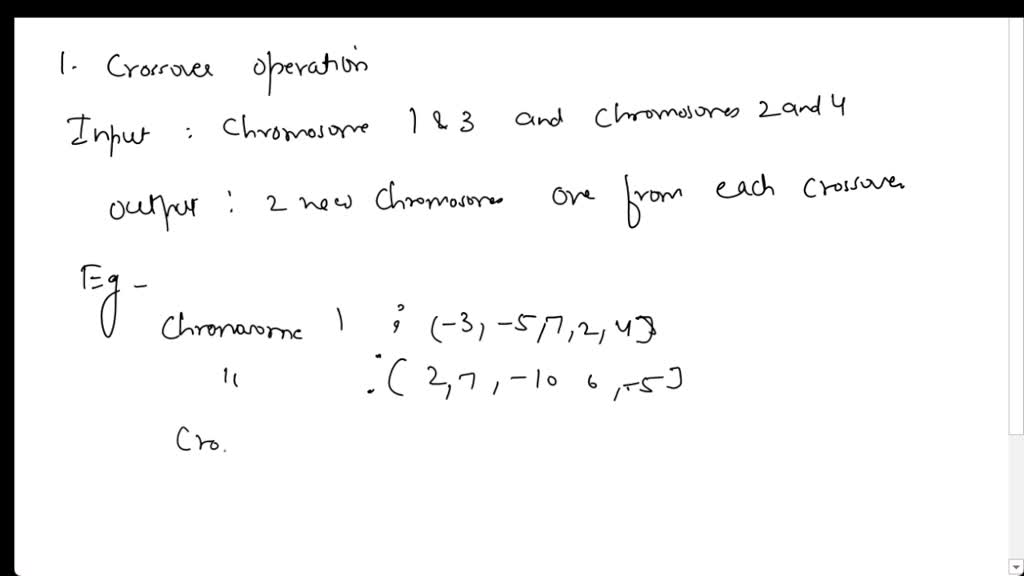 1. Crossover operation
Input : Chromosome 1 & 3 and Chromosomes 2 and 4
output : 2 new Chromosomes one from each crossover
Eg -
Chromosome 1 : (-3, -5, 7, 2, 4]
" : ( 2, 7, -10 6, -5]
Cro.